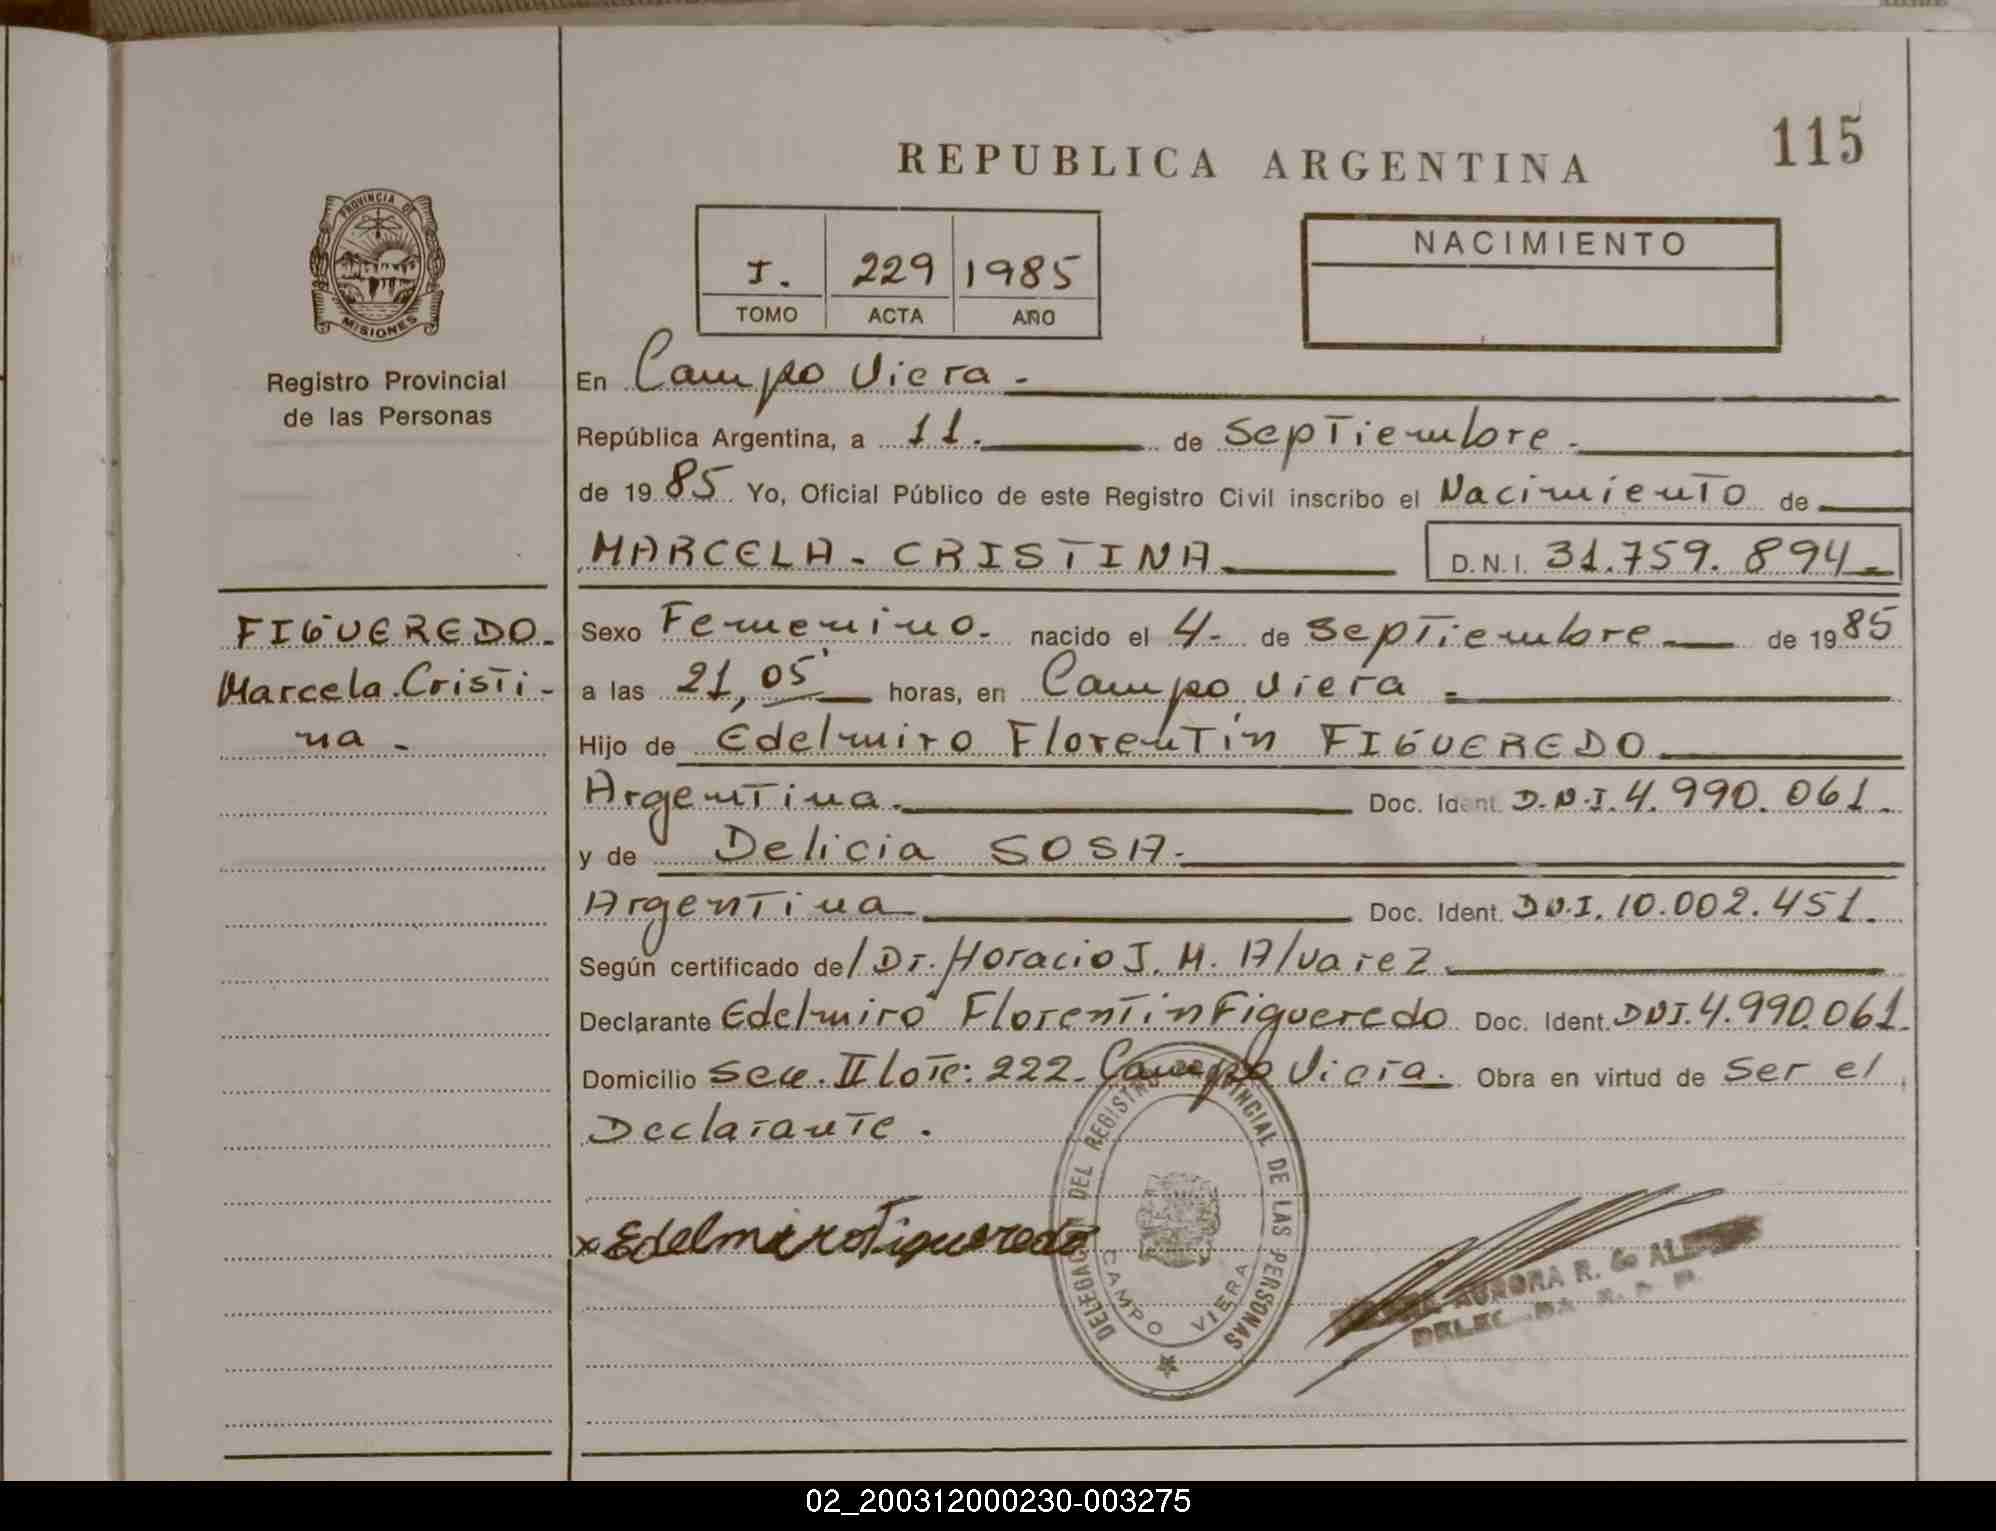 115
REPUBLICA ARGENTINA
PROVINCIA DE
MISIONES
Registro Provincial
de las Personas
I. 229 1985
TOMO ACTA AÑO
NACIMIENTO
En Campo Viera.
República Argentina, a 11. de Septiembre.
de 1985 Yo, Oficial Público de este Registro Civil inscribo el Nacimiento de
MARCELA - CRISTINA D.N.I. 31.759.894
FIGUEREDO.
Marcela Cristi-
na -
Sexo Femenino. nacido el 4. de Septiembre de 1985
a las 21,05' horas, en Campo Viera.
Hijo de Edelmiro Florentín FIGUEREDO
Argentina. Doc. Ident. D.N.I. 4.990.061.
y de Delicia SOSA.
Argentina Doc. Ident. D.N.I. 10.002.451.
Según certificado del Dr. Horacio J. M. Alvarez
Declarante Edelmiro Florentin Figueredo Doc. Ident. DNI. 4.990.061.
Domicilio Secc. II lote: 222. Campo Viera. Obra en virtud de Ser el
Declarante.
x Edelmiro Figueredo
DELEGACION DEL REGISTRO PROVINCIAL DE LAS PERSONAS
CAMPO VIERA
AURORA R. de
02_200312000230-003275